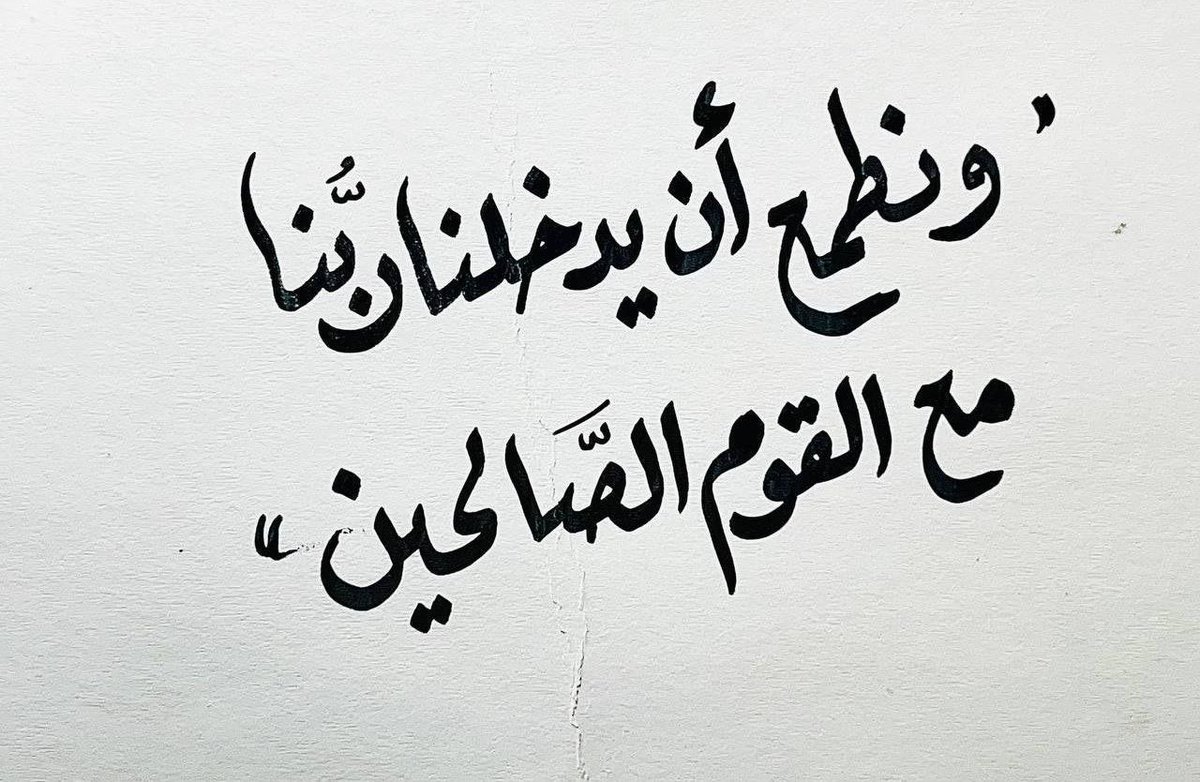 "ونطمع أن يدخلنا ربُّنا
مع القوم الصَّالحين"